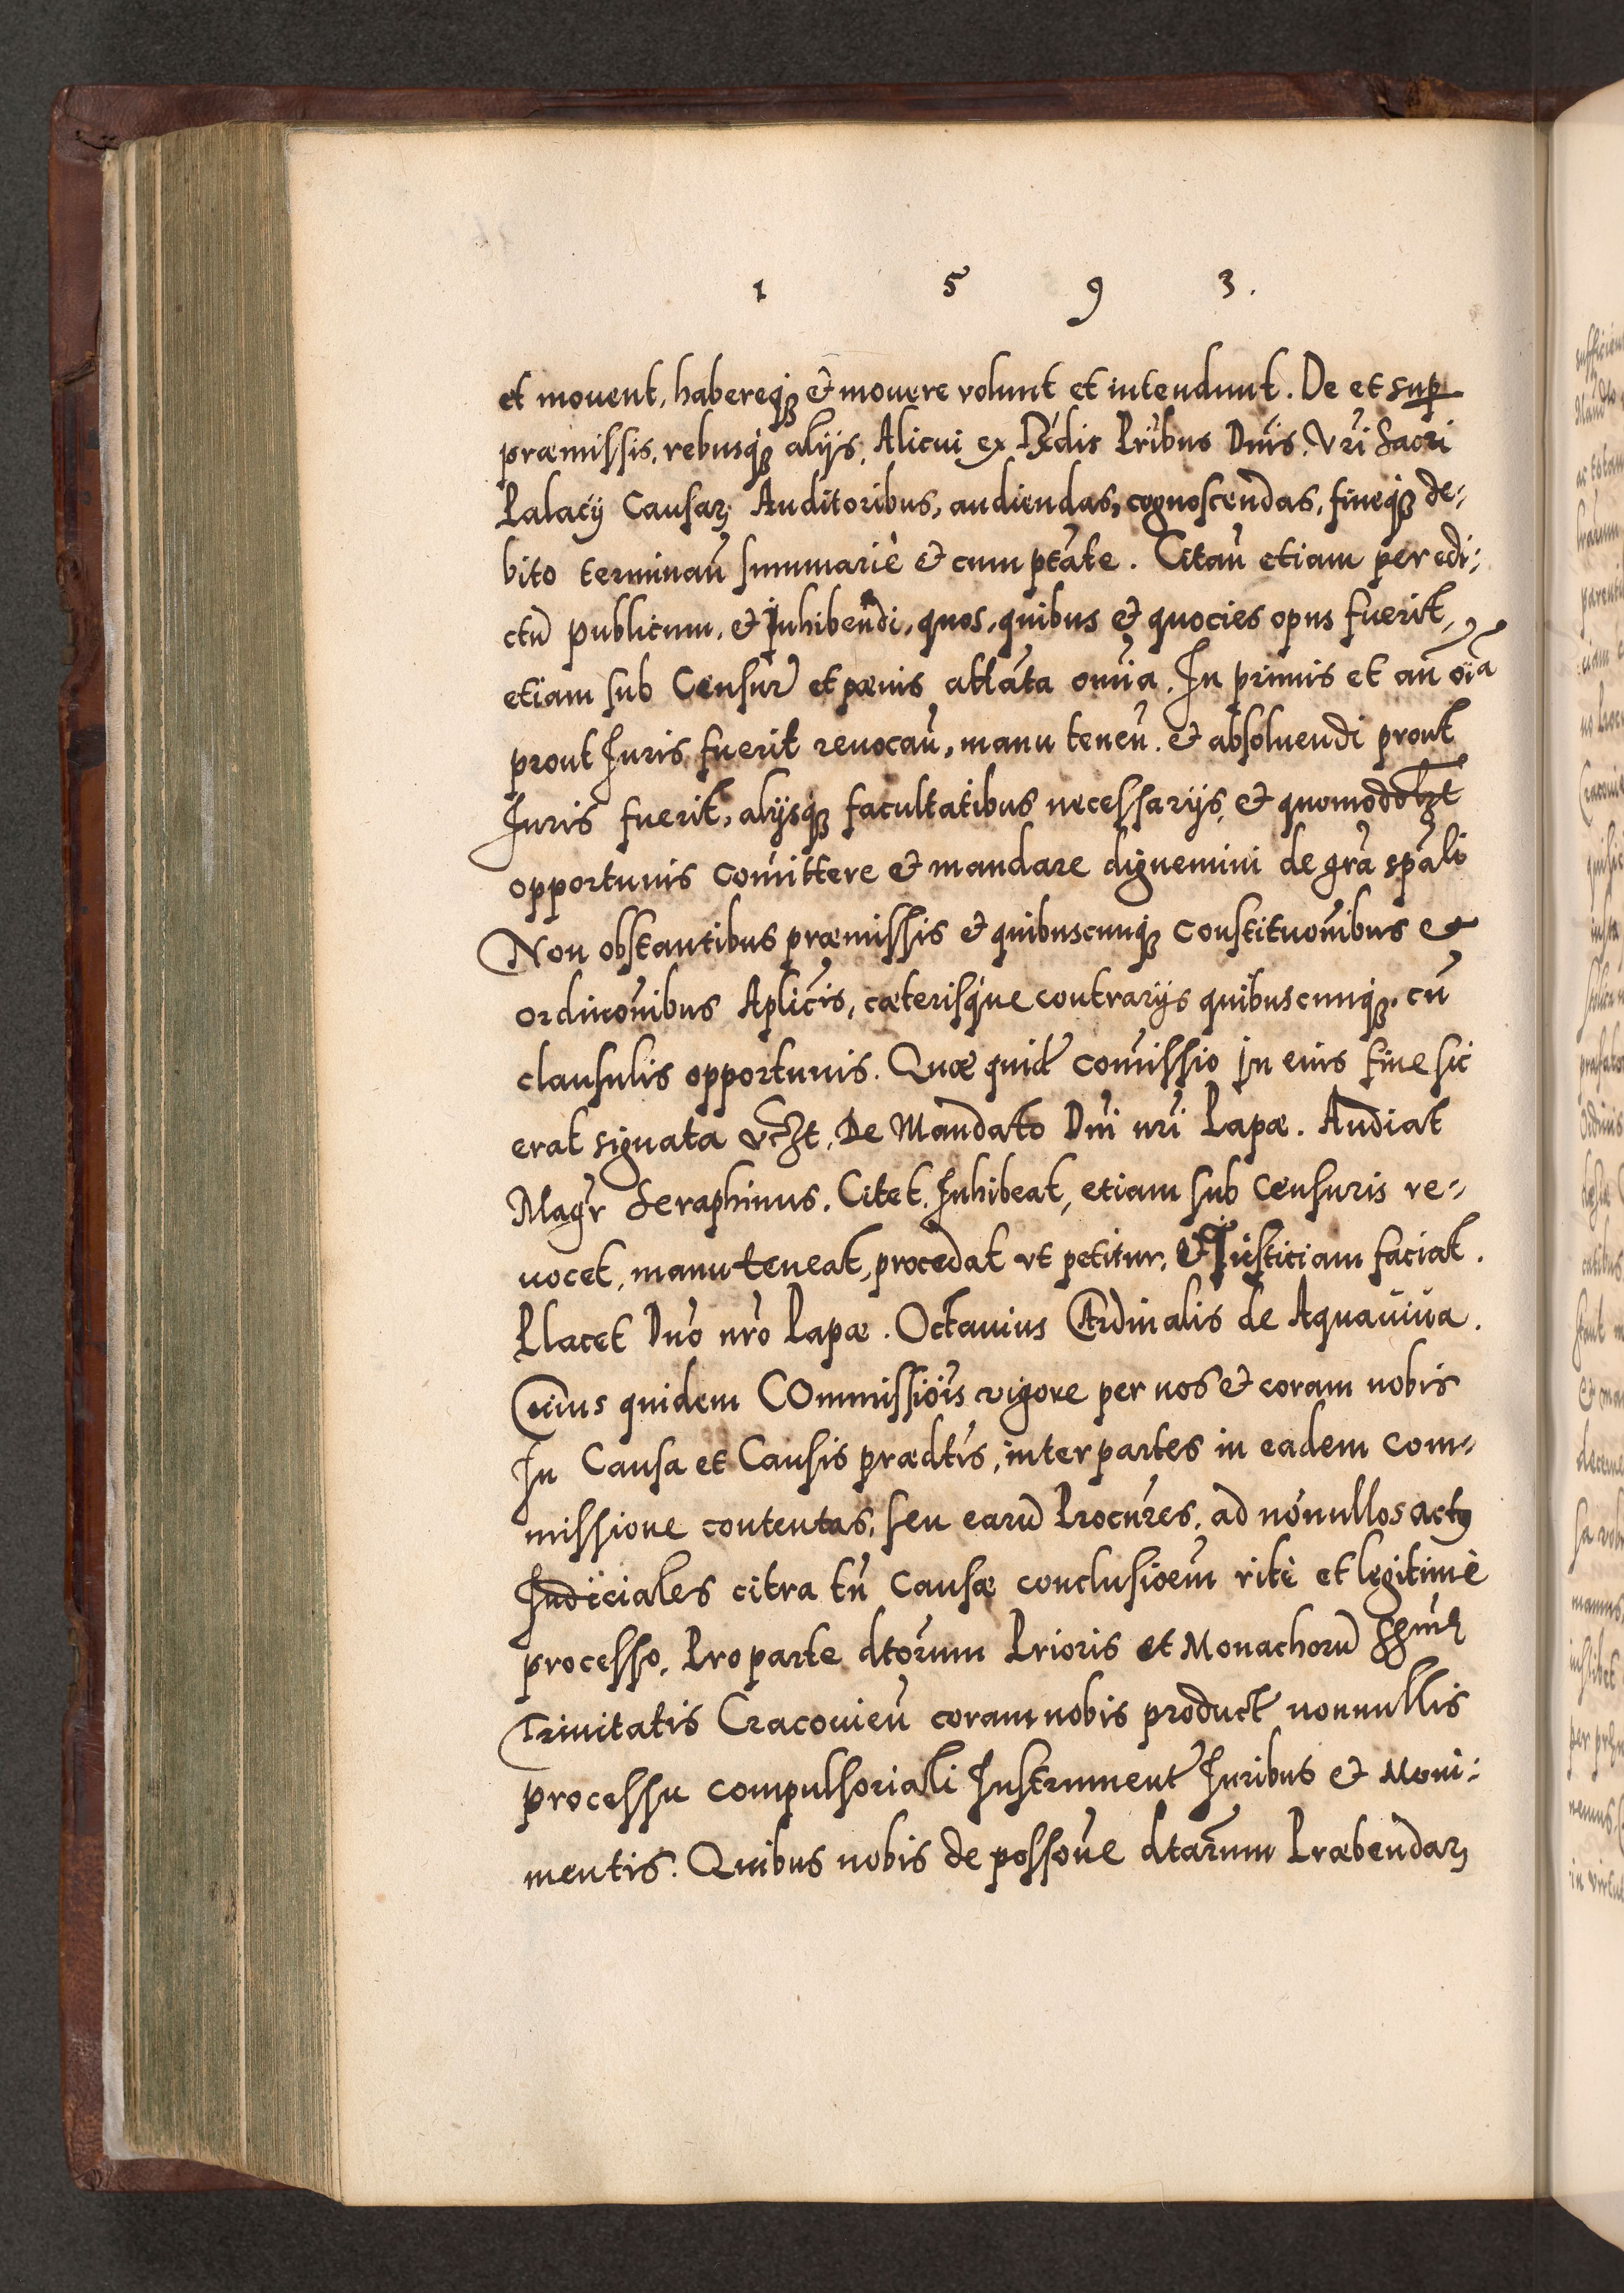 1 5 9 3.
et mouent, habereq&#x301;ꝫ et mouere volunt et intendunt. De et sup
præmissis, rebusq&#x301;ꝫ alijs, Alicui ex Pribus Dnis. Vri Sacri
Palacij Causaꝝ Auditoribus, audiendas, cognoscendas, fineq&#x301;ꝫ de-
bito terminan̄ summariè et cum ptate. Citan̄ etiam per edi-
ctū publicum, et Inhibendi, quos, quibus et quocies opus fuerit,
etiam sub Censur et pænis attata omnia. In primis et an oīa
prout Iuris fuerit reuocan̄, manu tenen̄. et absoluendi prout
Iuris fuerit, alijsq&#x301;ꝫ facultatibus necessarijs, et quomodolꝫt
opportunis com̄ittere et mandare dignemini de gr̄a spāli
Non obstantibus præmissis et quibuscunq&#x301;ꝫ constituōnibus et
ordinōnibus Aplicīs, cæterisq&#x301;ue contrarijs quibuscunq&#x301;ꝫ. cū
clausulis opportunis. Quæ quid&#x301; com̄issio In eius fine sic
erat signata vꝫt, De Mandato Dni nr̄i Papæ. Audiat
Magr̄ Seraphinus. Citet. Inhibeat, etiam sub Censuris re-
uocet, manuteneat, procedat vt petitur, et Iusticiam faciat.
Placet Dno nr̄o Papæ. Octauius Cardinalis de Aquauiua.
Cuius quidem Commissiōis vigore per nos et coram nobis
In Causa et Causis prædtis, inter partes in eadem com-
missione contentas, seu earū Procur̄es, ad nōnullos actꝰ
Iudiciales citra tn̄ Causæ conclusiōem ritè et legitimè
processo, Pro parte dtorum Prioris et Monachorū
Trinitatis Cracouien̄ coram nobis product nonnullis
processu compulsoriali Instrument Iuribus et Moni-
mentis. Quibus nobis de possōne dtarum Præbendaꝝ